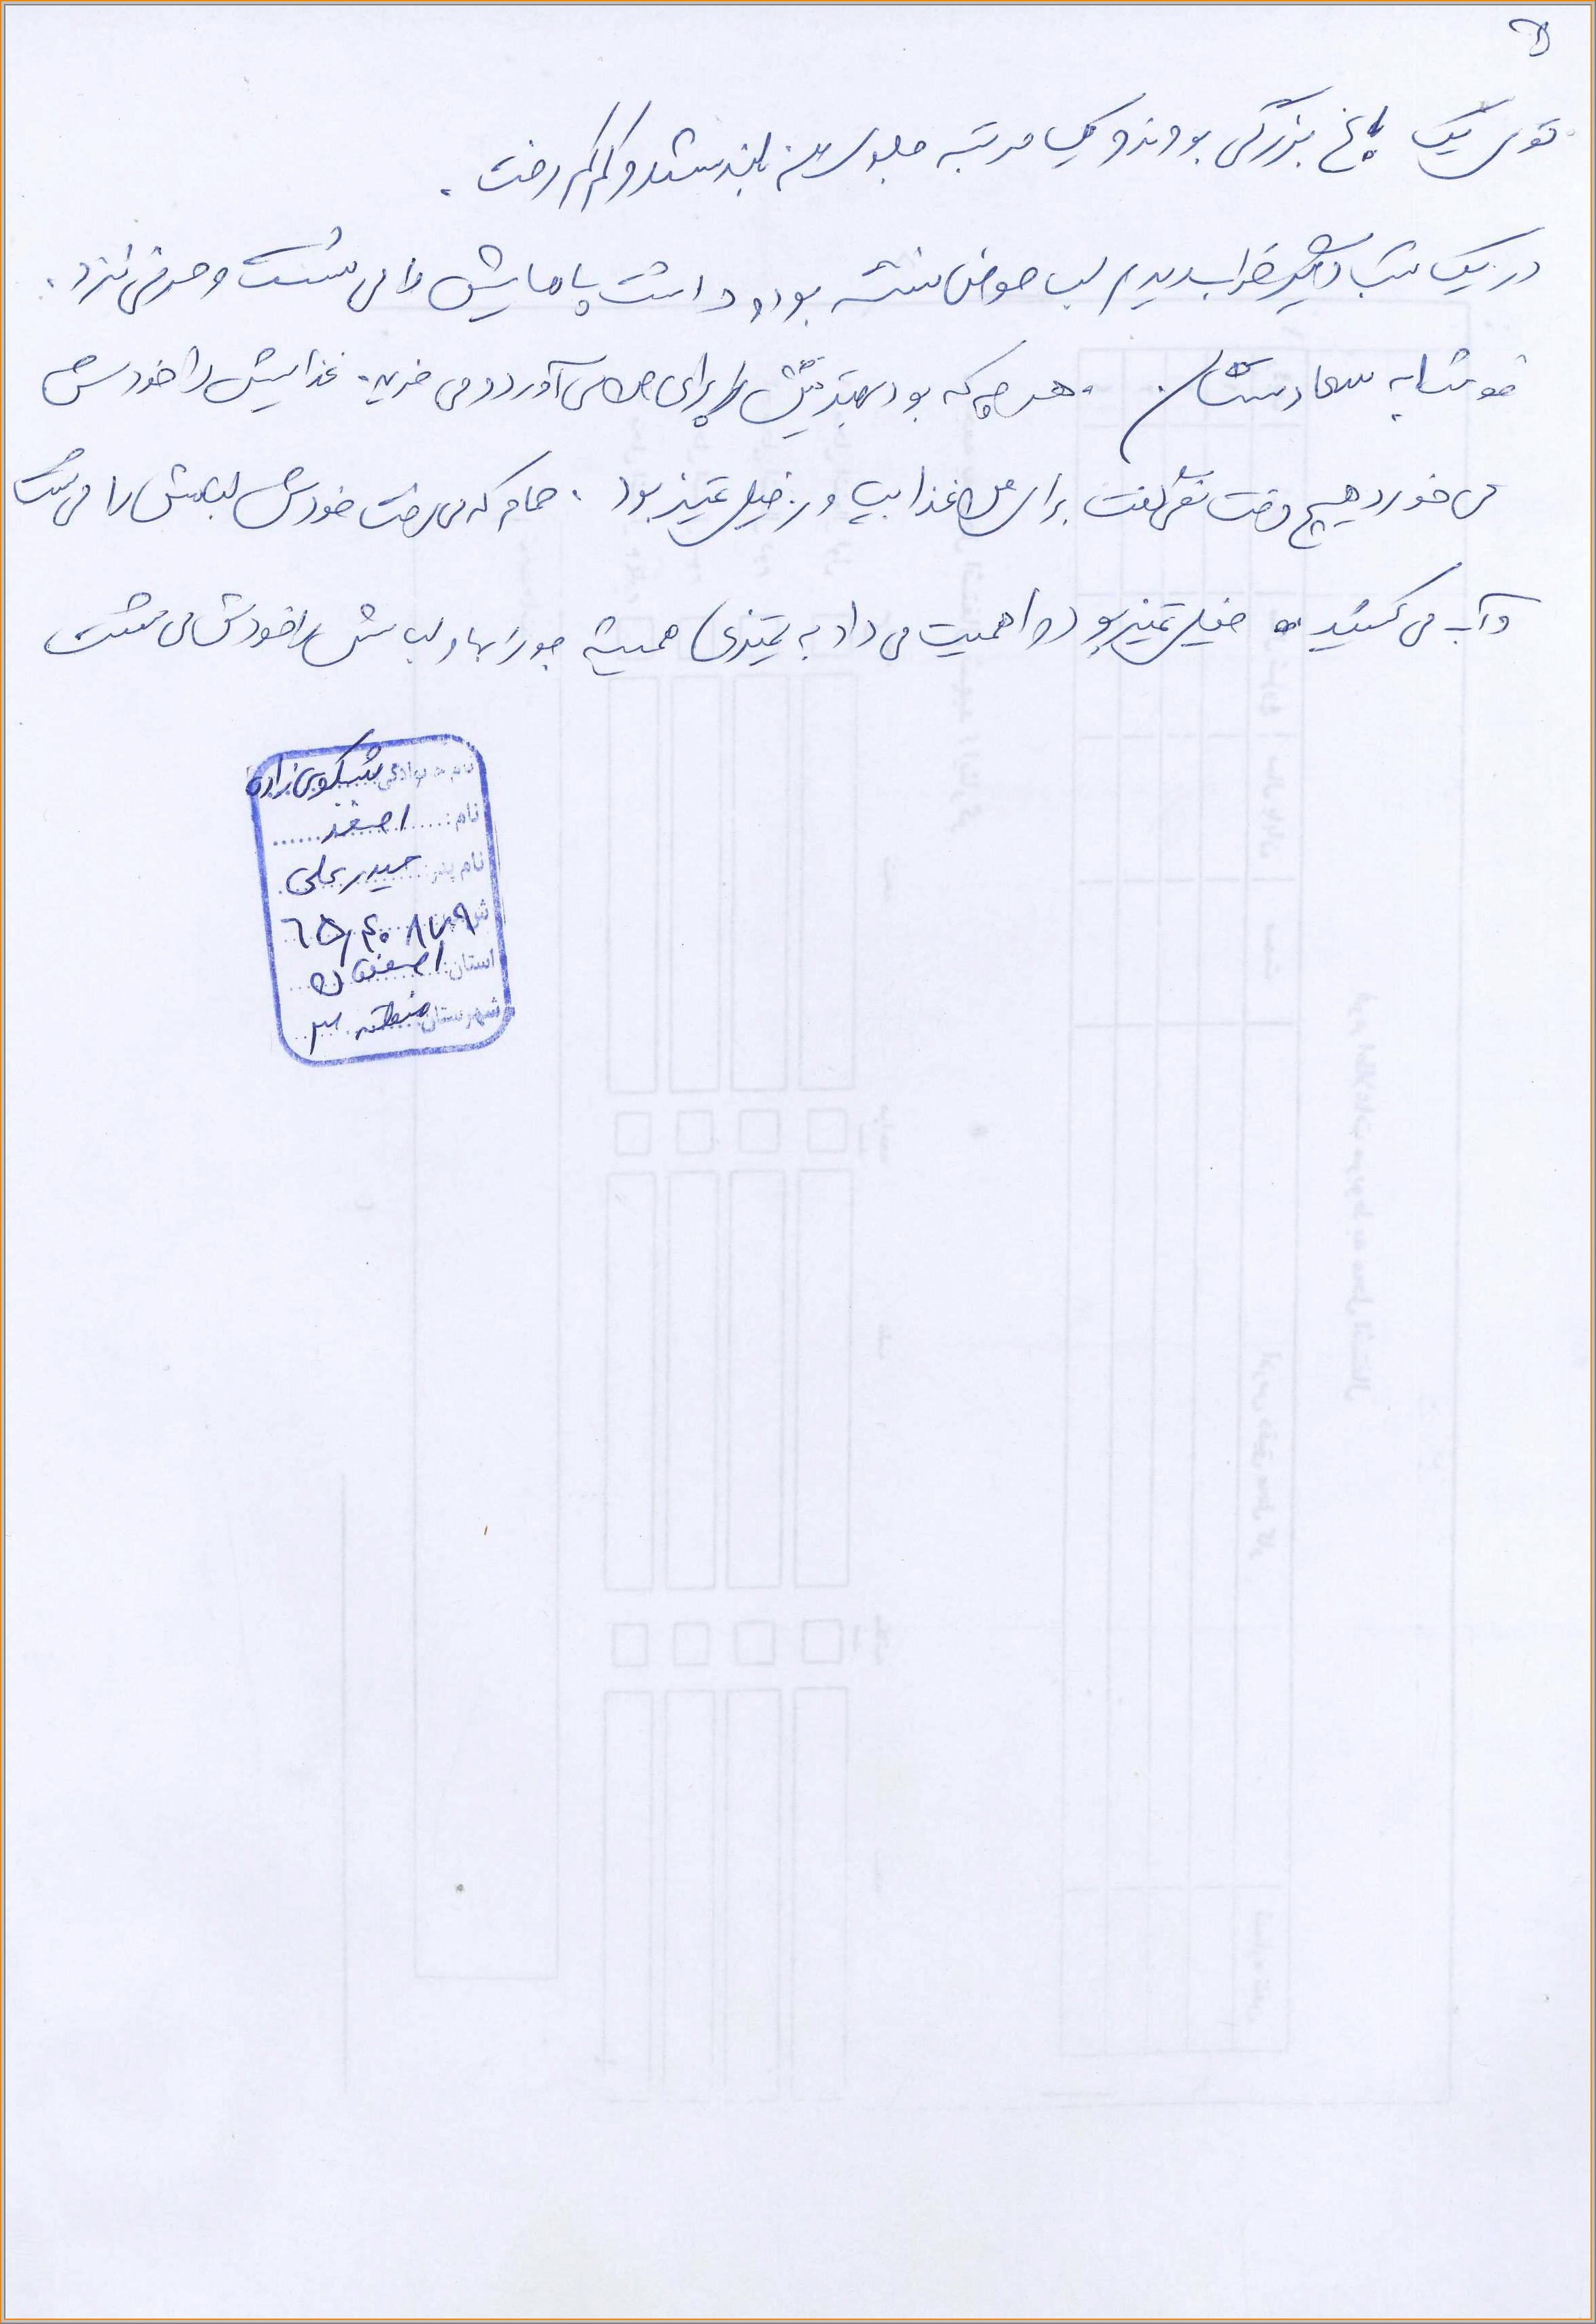 ۵
توی یک باغ بزرگی بودند و یک مرتبه جلوی من بلند شد و کم کم رفت .
در یک شب دیگر خواب دیدم لب حوض نشسته بود و داشت پاهایش را می شست و حرفی نزد .
خوشا به سعادتشان . هر چه که بود بهترینش را برای ما می آورد و می خرید . غذایش را خودش
می خورد هیچ وقت نمی گفت برای من غذا بیاور خیلی تمیز بود . حمام که می رفت خودش لباسش را می شست
و آب می کشید خیلی تمیز بود و اهمیت می داد به تمیزی همیشه جورابها و لباسش را خودش می شست
نام خانوادگی شکوی زاده
نام : اصغر
نام پدر حیدرعلی
۶۵۸۴۰۸۷۹
استان : اصفهان
شهرستان منطقه ۳